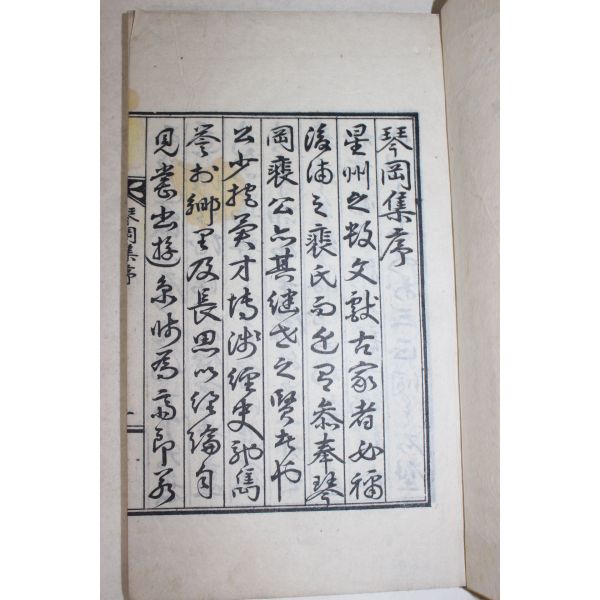 琴岡集序
星州之數文獻古家者必稱
後浦之裵氏而近有參奉琴
岡裵公亦其繼世之賢者也
公少挺異才博涉經史馳雋
譽於鄉里及長思以經綸自
見嘗出遊京師爲當
琴岡集序
一